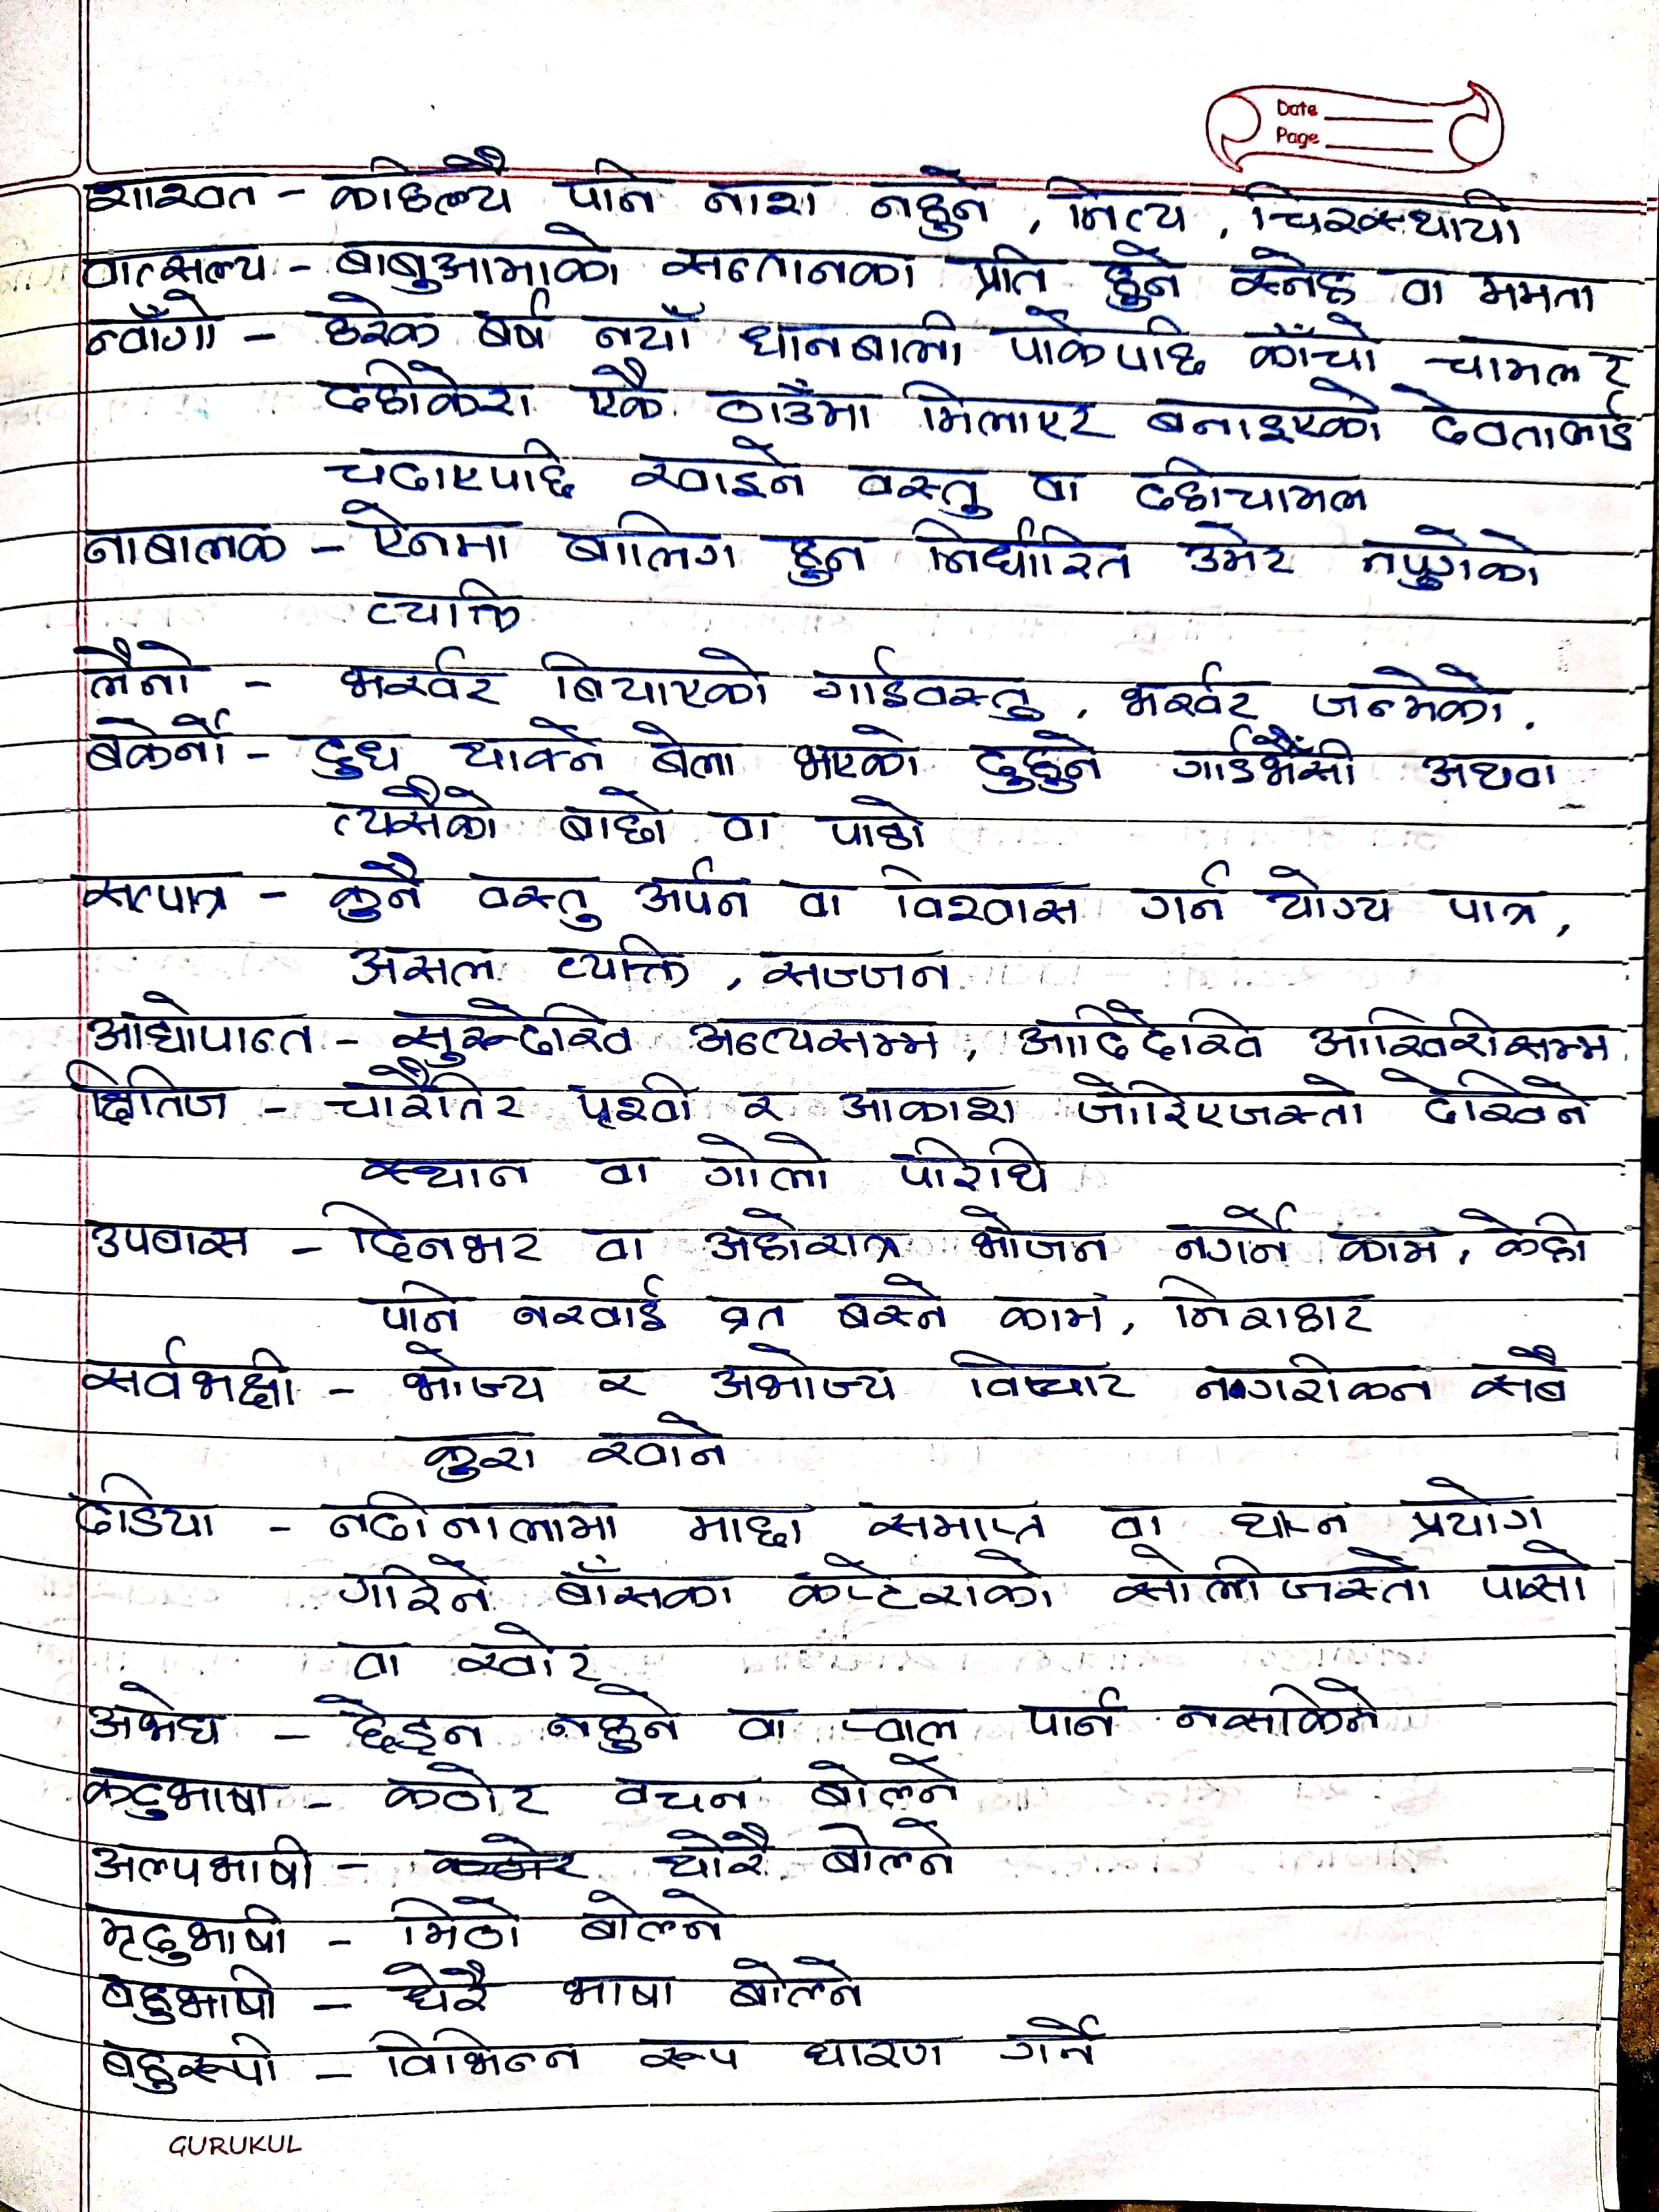 Date
Page
शाश्वत - कहिल्यै पनि नाश नहुने, नित्य, चिरस्थायी
वात्सल्य - बाबुआमाको सन्तानका प्रति हुने स्नेह वा ममता
न्वाँगी - हरेक बर्ष नयाँ धानबाली पाकेपछि काँचो चामल र
दहीकेरा एकै ठाउँमा मिलाएर बनाइएको देवतालाई
चढाएपछि खाइने वस्तु वा दहीचामल
नाबालक - ऐनमा बालिग हुन निर्धारित उमेर नपुगेको
व्यक्ति
लैनो - भर्खर बियाएको गाईवस्तु, भर्खर जन्मेको.
बकेर्नो - दुध थाक्ने बेला भएको दुहुने गाईभैँसी अथवा
त्यसैको बाछो वा पाडो
सत्पात्र - कुनै वस्तु अर्पन वा विश्वास गर्न योग्य पात्र,
असल व्यक्ति, सज्जन
आद्योपान्त - सुरुदेखि अन्त्यसम्म, आदिदेखि आखिरीसम्म
क्षितिज - चारैतिर पृथ्वी र आकाश जोरिएजस्तो देखिने
स्थान वा गोलो परिधि
उपवास - दिनभर वा अहोरात्र भोजन नगर्ने काम, केही
पनि नखाई व्रत बस्ने काम, निराहार
सर्वभक्षी - भोज्य र अभोज्य विचार नगरीकन सबै
कुरा खाने
ढडिया - नदीनालामा माछा समात्न वा थाप्न प्रयोग
गरिने बाँसका कप्टेराको सोलीजस्तो पासो
वा खोर
अभेद्य - छेड्न नहुने वा प्वाल पार्न नसकिने
कटुभाषा - कठोर वचन बोल्ने
अल्पभाषी - कठोर थोरै बोल्ने
मृदुभाषी - मिठो बोल्ने
बहुभाषी - धेरै भाषा बोल्ने
बहुरूपी - विभिन्न रूप धारण गर्ने
GURUKUL